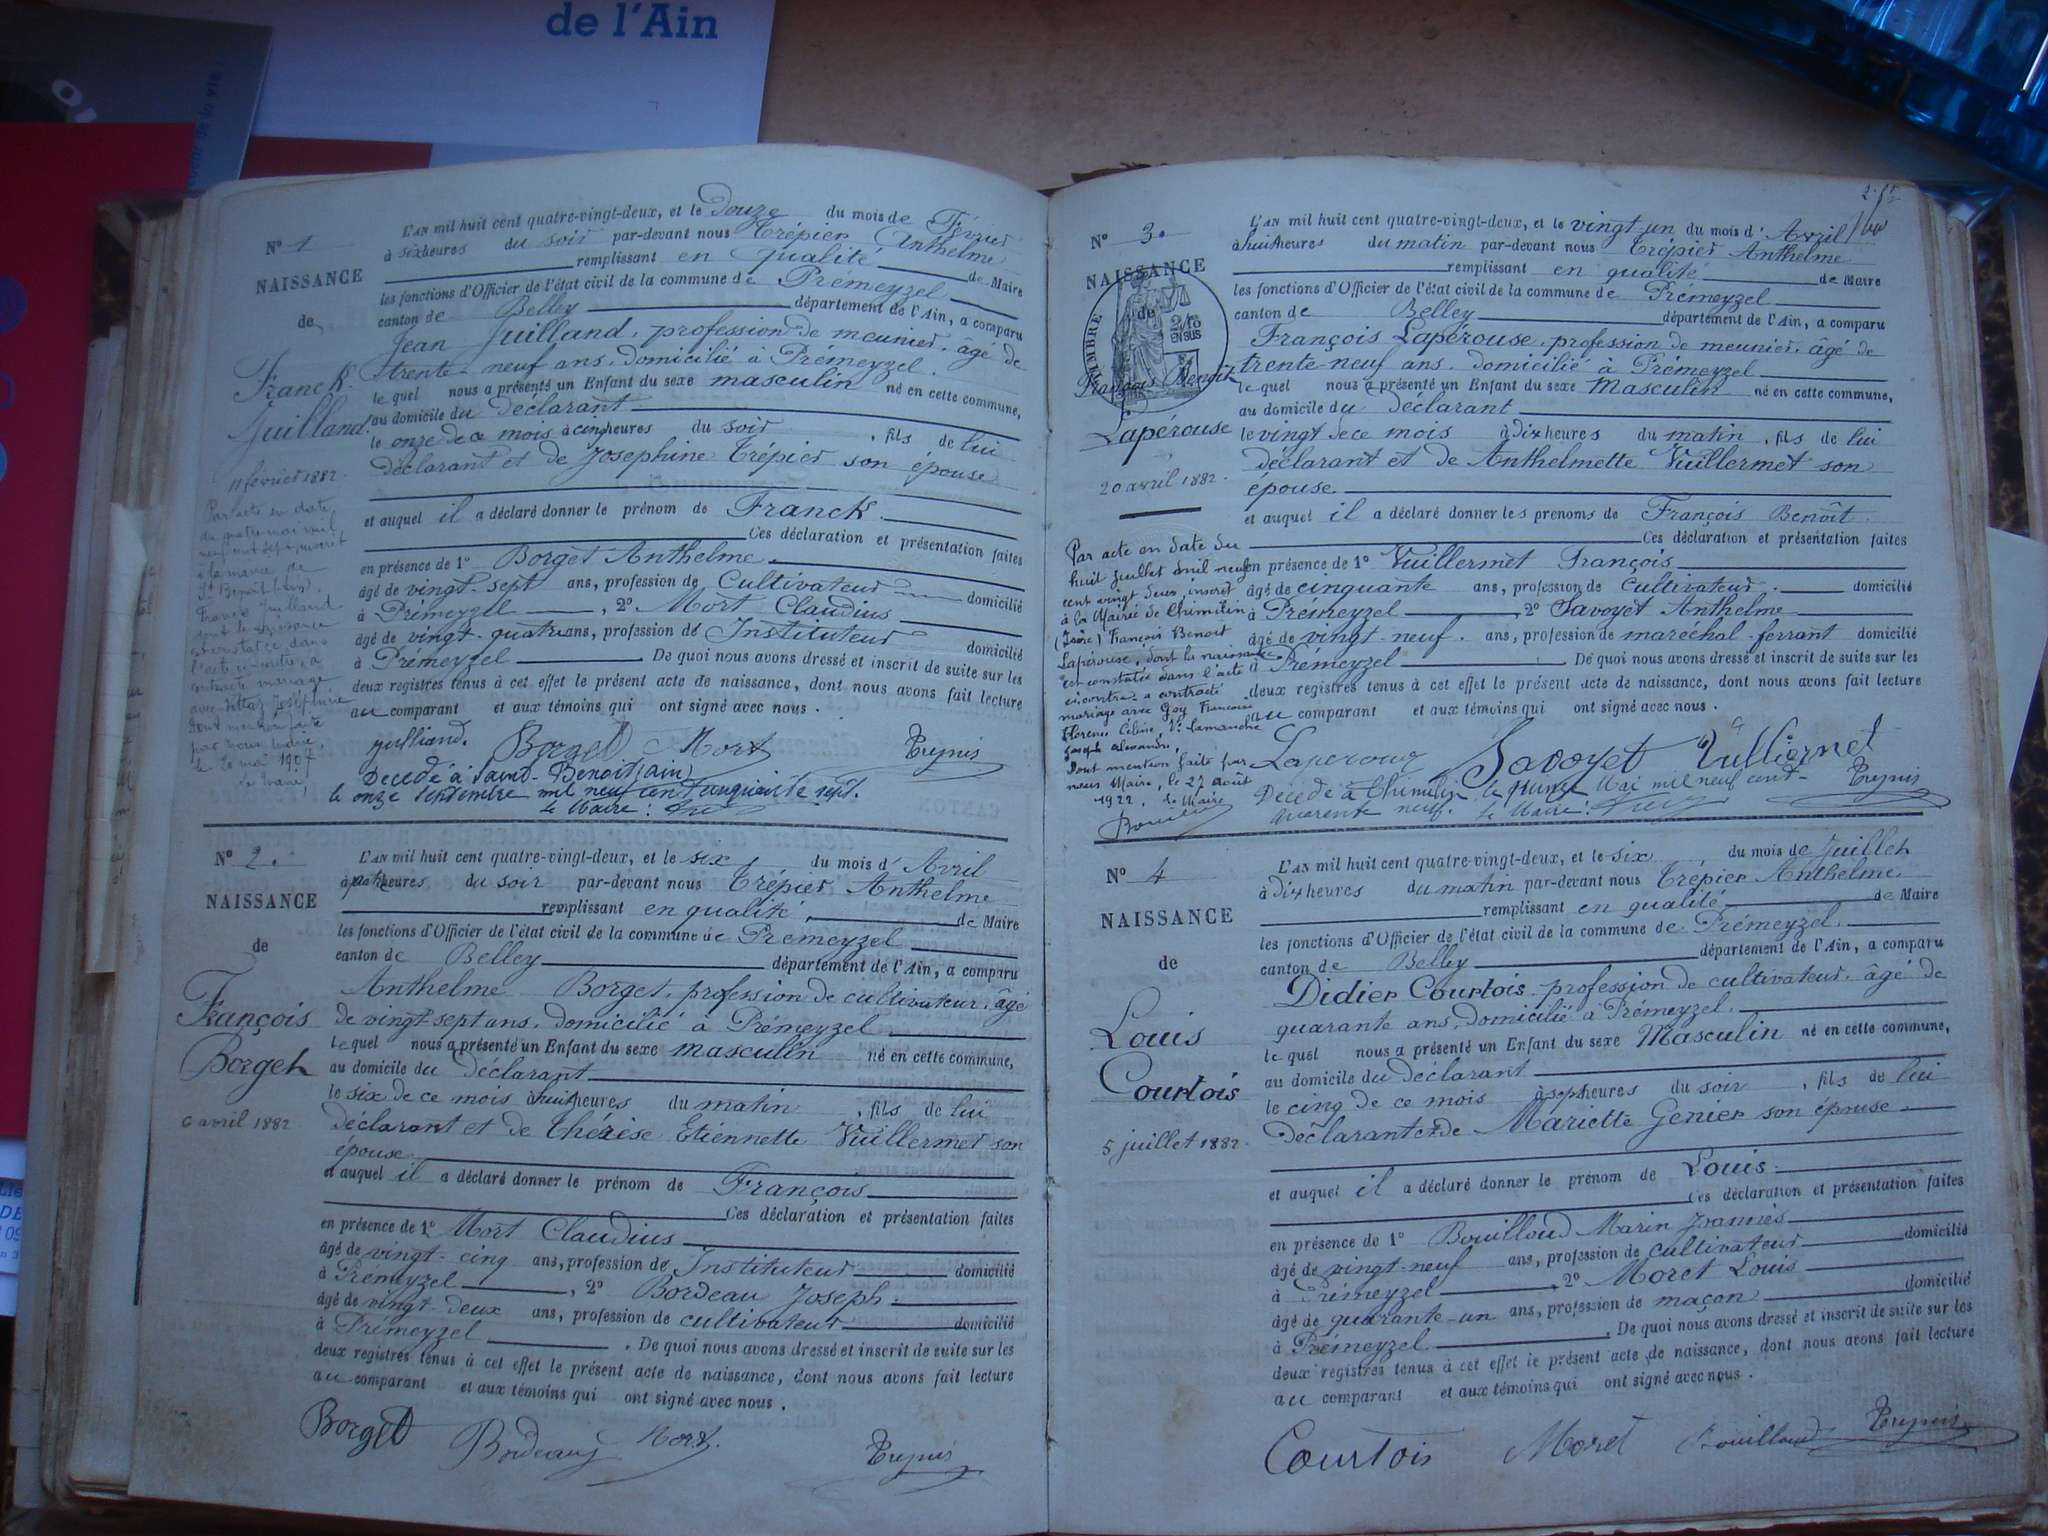 de l'Ain
N° 1
NAISSANCE
de
Franck
Juilland
11 février 1882.
Par acte en date
du quatre mai mil
neuf cent sept, inscrit
à la mairie de
St Benoît (Ain),
Franck Juilland
dont la naissance
est constatée dans
l'acte ci-contre, a
contracté mariage
avec Joséphine
dont mention faite
par nous
le 20 mai 1907
Le Maire,
L'AN mil huit cent quatre-vingt-deux, et le Douze du mois de Février
à six heures du soir par-devant nous Trépier Anthelme
remplissant en qualité de Maire
les fonctions d'Officier de l'état civil de la commune de Prémeyzel
canton de Belley département de l'Ain, a comparu
Jean Juilland, profession de meunier, âgé de
trente-neuf ans, domicilié à Prémeyzel.
le quel nous a présenté un Enfant du sexe masculin né en cette commune,
au domicile du déclarant
le onze de ce mois à cinq heures du soir, fils de lui
déclarant et de Josephine Trépier son épouse
et auquel il a déclaré donner le prénom de Franck.
Ces déclaration et présentation faites
en présence de 1° Borget Anthelme
âgé de vingt-sept ans, profession de Cultivateur domicilié
à Prémeyzel, 2° Mort Claudius
âgé de vingt-quatre ans, profession de Instituteur domicilié
à Prémeyzel. De quoi nous avons dressé et inscrit de suite sur les
deux registres tenus à cet effet le présent acte de naissance, dont nous avons fait lecture
au comparant et aux témoins qui ont signé avec nous.
Juilliand. Borget Mort
Décédé à Saint-Benoit (Ain)
le onze septembre mil neuf cent cinquante sept.
le Maire:
N° 2.
NAISSANCE
de
François
Borget
6 avril 1882
L'AN mil huit cent quatre-vingt-deux, et le six du mois d'Avril
à quatre heures du soir par-devant nous Trépier Anthelme
remplissant en qualité, de Maire
les fonctions d'Officier de l'état civil de la commune de Prémeyzel
canton de Belley département de l'Ain, a comparu
Anthelme Borget, profession de cultivateur, âgé
de vingt-sept ans, domicilié à Prémeyzel
le quel nous a présenté un Enfant du sexe masculin né en cette commune,
au domicile du déclarant
le six de ce mois à huit heures du matin, fils de lui
déclarant et de Thérèse Etiennette Vuillermet son
épouse
et auquel il a déclaré donner le prénom de François
Ces déclaration et présentation faites
en présence de 1° Mort Claudius
âgé de vingt-cinq ans, profession de Instituteur domicilié
à Prémeyzel, 2° Bordeau Joseph
âgé de vingt-deux ans, profession de cultivateur domicilié
à Prémeyzel. De quoi nous avons dressé et inscrit de suite sur les
deux registres tenus à cet effet le présent acte de naissance, dont nous avons fait lecture
au comparant et aux témoins qui ont signé avec nous.
Borget Bordeaux Mort.
N° 3.
NAISSANCE
de
TIMBRE
2/10
EN SUS
François Benoît
Lapérouse
20 avril 1882.
Par acte en date du
huit Juillet mil neuf
cent vingt deux, inscrit
à la Mairie de Chimilin
(Isère) François Benoit
Lapérouse, dont la naissance
est constatée dans l'acte
ci-contre a contracté
mariage avec Goy Francoise
Florence Céline, Ve Lamanche
Joseph Alexandre.
Dont mention faite par
nous Maire, le 27 août
1922. Le Maire
L'AN mil huit cent quatre-vingt-deux, et le vingt un du mois d'Avril
à huit heures du matin par-devant nous Trépier Anthelme
remplissant en qualité de Maire
les fonctions d'Officier de l'état civil de la commune de Prémeyzel
canton de Belley département de l'Ain, a comparu
François Lapérouse, profession de meunier, âgé de
trente-neuf ans, domicilié à Prémeyzel
le quel nous a présenté un Enfant du sexe Masculin né en cette commune,
au domicile du déclarant
le vingt de ce mois à dix heures du matin, fils de lui
déclarant et de Anthelmette Vuillermet son
épouse.
et auquel il a déclaré donner les prénoms de François Benoît.
Ces déclaration et présentation faites
en présence de 1° Vuillermet François
âgé de cinquante ans, profession de cultivateur. domicilié
à Prémeyzel, 2° Savoyet Anthelme
âgé de vingt-neuf. ans, profession de maréchal-ferrant domicilié
à Prémeyzel. De quoi nous avons dressé et inscrit de suite sur les
deux registres tenus à cet effet le présent acte de naissance, dont nous avons fait lecture
au comparant et aux témoins qui ont signé avec nous.
Laperouz Savoyet Vulliermet
Décédé à Chimilin, le quinze Mai mil neuf cent
quarente neuf. le Maire:
N° 4
NAISSANCE
de
Louis
Courtois
5 juillet 1882.
L'AN mil huit cent quatre-vingt-deux, et le six du mois de Juillet
à dix heures du matin par-devant nous Trépier Anthelme.
remplissant en qualité de Maire
les fonctions d'Officier de l'état civil de la commune de Prémeyzel.
canton de Belley département de l'Ain, a comparu
Didier Courtois, profession de cultivateur, âgé de
quarante ans, domicilié à Prémeyzel.
le quel nous a présenté un Enfant du sexe Masculin né en cette commune,
au domicile du déclarant
le cinq de ce mois à sept heures du soir, fils de lui
déclarant et de Mariette Genier son épouse
et auquel il a déclaré donner le prénom de Louis.
Ces déclaration et présentation faites
en présence de 1° Bouilloud Marin Joannès
âgé de vingt-neuf ans, profession de cultivateur domicilié
à Prémeyzel, 2° Moret Louis
âgé de quarante-un ans, profession de maçon domicilié
à Prémeyzel. De quoi nous avons dressé et inscrit de suite sur les
deux registres tenus à cet effet le présent acte de naissance, dont nous avons fait lecture
au comparant et aux témoins qui ont signé avec nous.
Courtois Moret Bouilloud